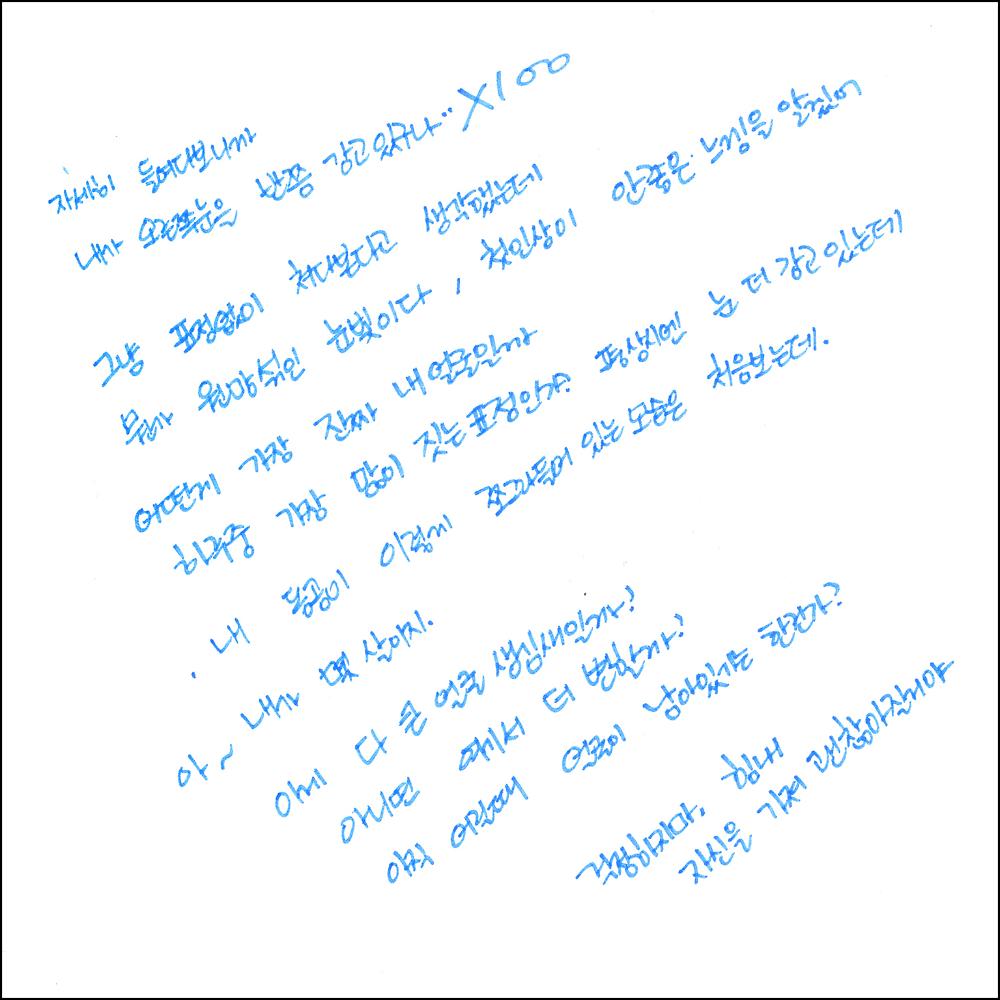 자세히 들여다보니까
내가 오른쪽눈은 반쯤 감고있구나.. X100
그냥 표정없이 쳐다본다고 생각했는데
뭔가 원망섞인 눈빛이다, 첫인상이 안좋은 느낌을 알겠어
어떤게 가장 진짜 내 얼굴일까
하루중 가장 많이 짓는 표정인가? 평상시엔 눈 더 감고 있는데
. 내 동공이 이렇게 쪼그라들어 있는 모습은 처음보는데.
아~ 내가 몇 살이지.
이게 다 큰 얼굴 생김새일까?
아니면 여기서 더 변할까?
아직 어릴때 얼굴이 남아있기는 한건가?
걱정하지마. 힘내
자신을 가져 괜찮아질거야